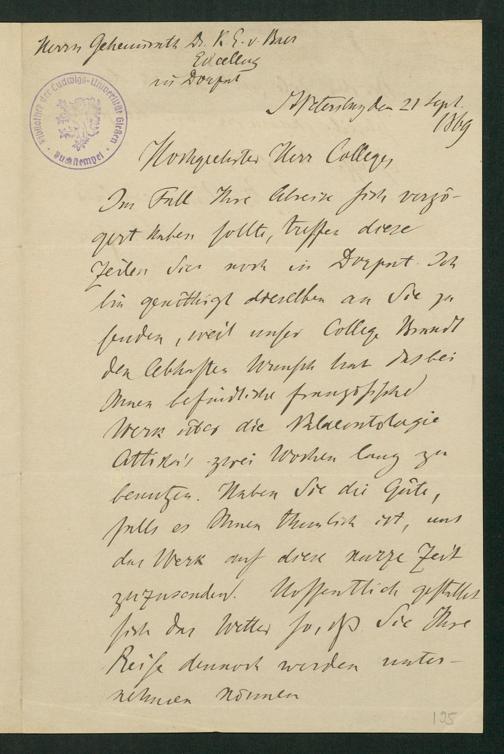 Herrn Geheimrath Dr. K. E. v. Baer
Excellenz
in Dorpat
Bibliothek der Ludwigs-Universität Gießen
Buchstempel
St Petersburg den 21 Sept.
1869
Hochgeehrter Herr College,
Im Fall Ihre Abreise sich verzö-
gert haben sollte, treffen diese
Zeilen Sie noch in Dorpat. Ich
bin genöthigt dieselben an Sie zu
senden, weil unser College Brandt
den lebhaften Wunsch hat das bei
Ihnen befindliche französische
Werk über die Palaeontologie
Attika's zwei Wochen lang zu
benutzen. Haben Sie die Güte,
falls es Ihnen thunlich ist, uns
das Werk auf diese kurze Zeit
zuzusenden. Hoffentlich gestaltet
sich das Wetter so, daß Sie Ihre
Reise dennoch werden unter-
nehmen können
195